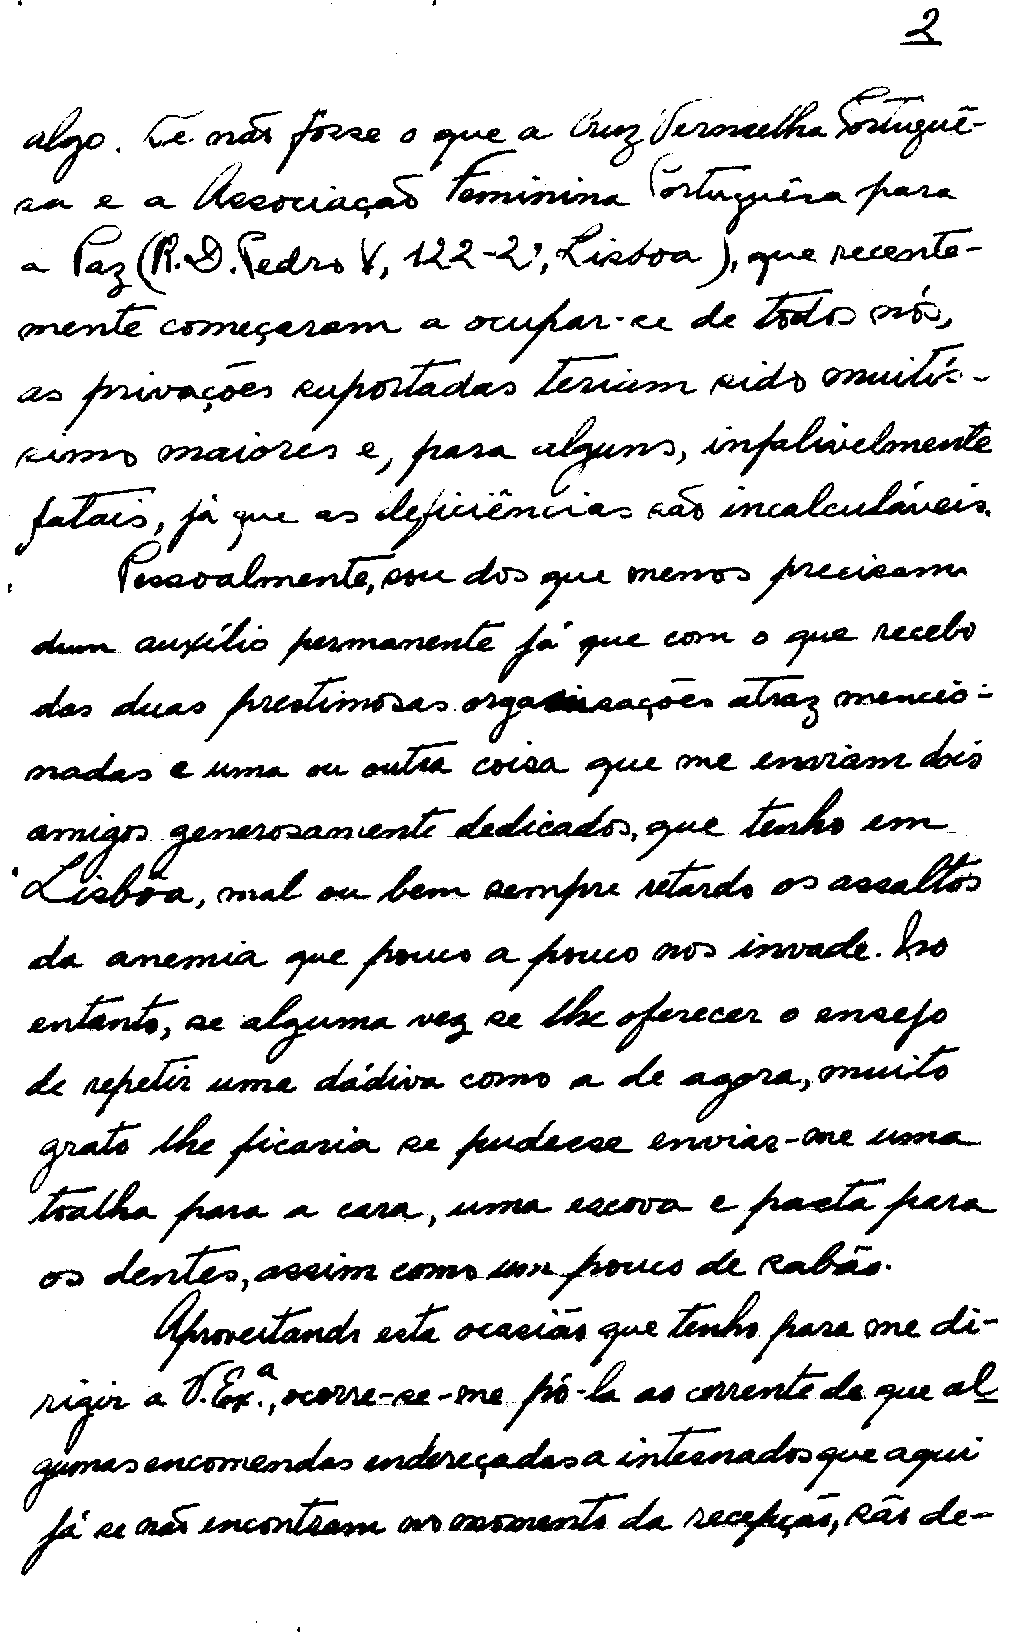 2
algo. Se não fôsse o que a Cruz Vermelha Portuguê-
sa e a Associação Feminina Portuguêsa para
a Paz (R. D. Pedro V, 122-2º, Lisboa), que recente-
mente começaram a ocupar-se de todos nós,
as privações suportadas teriam sido muitís-
simo maiores e, para alguns, infalivelmente
fatais, já que as deficiências são incalculáveis.
Pessoalmente, sou dos que menos precisam
dum auxílio permanente já que com o que recebo
das duas prestimosas organisações atraz mencio-
nadas e uma ou outra coisa que me enviam dois
amigos generosamente dedicados, que tenho em
Lisbôa, mal ou bem sempre retardo os assaltos
da anemia que pouco a pouco nos invade. No
entanto, se alguma vez se lhe oferecer o ensejo
de repetir uma dádiva como a de agora, muito
grato lhe ficaria se pudesse enviar-me uma
toalha para a cara, uma escova e pasta para
os dentes, assim como um pouco de sabão.
Aproveitando esta ocasião que tenho para me di-
rigir a V. Exª., ocorre-se-me pô-la ao corrente de que al-
gumas encomendas endereçadas a internados que aqui
já se não encontram no momento da recepção, são de-